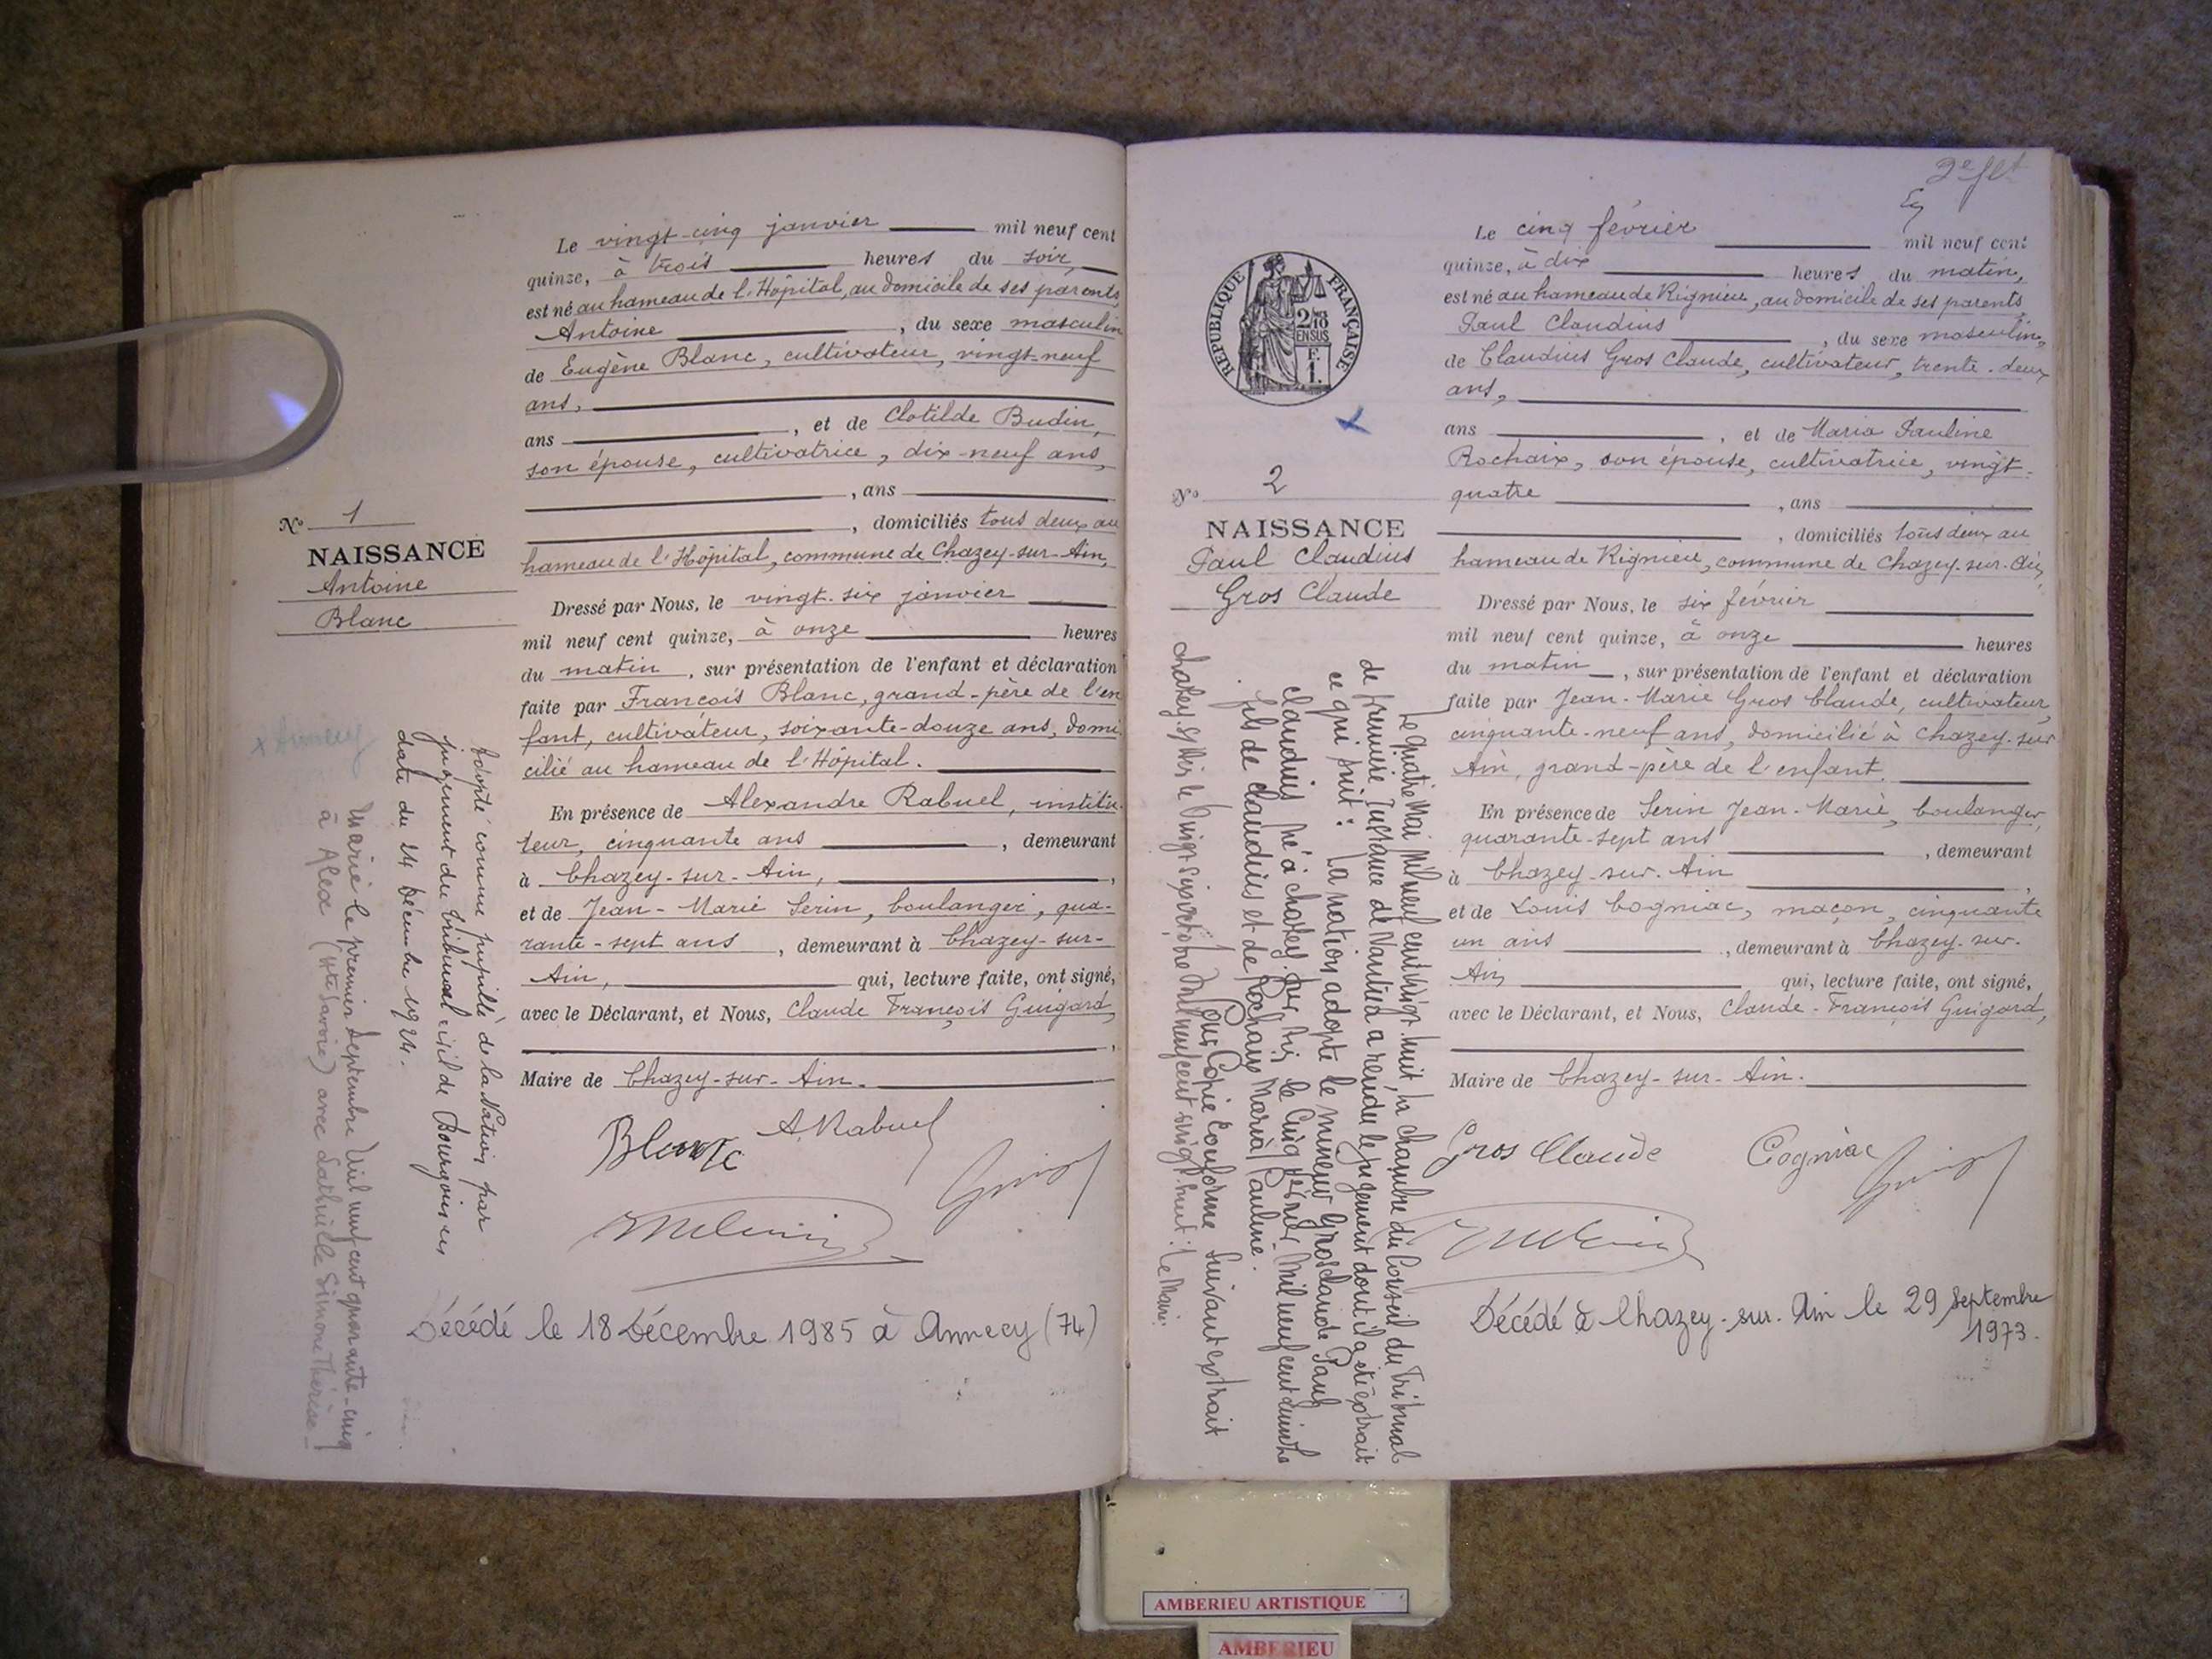 Le vingt-cinq janvier mil neuf cent
quinze, à trois heures du soir,
est né au hameau de l'Hôpital, au domicile de ses parents,
Antoine , du sexe masculin
de Eugène Blanc, cultivateur, vingt-neuf
ans,
ans , et de Clotilde Budin,
son épouse, cultivatrice, dix-neuf ans,
, ans
, domiciliés tous deux au
hameau de l'Hôpital, commune de Chazey-sur-Ain,
Dressé par Nous, le vingt-six janvier
mil neuf cent quinze, à onze heures
du matin , sur présentation de l'enfant et déclaration
faite par François Blanc, grand-père de l'en
fant, cultivateur, soixante-douze ans, domi
cilié au hameau de l'Hôpital.
En présence de Alexandre Rabuel, institu-
teur, cinquante ans , demeurant
à Chazey-sur-Ain, ,
et de Jean-Marie Serin, boulanger, qua-
rante-sept ans , demeurant à Chazey-sur-
Ain, qui, lecture faite, ont signé,
avec le Déclarant, et Nous, Claude François Guigard,
,
Maire de Chazey-sur-Ain.
Blanc A. Rabuel
Décédé le 18 Décembre 1985 à Annecy (74)
No 1
NAISSANCE
Antoine
Blanc
Adopté comme pupille de la Nation par
jugement du tribunal civil de Bourgoin en
date du 24 Décembre 1924.
Marié le premier Septembre Mil neuf cent quarante-cinq
à Alex (Hte Savoie) avec Simone Thérèse
2e flt
REPUBLIQUE FRANÇAISE
2/10
EN SUS
F.
1.
No 2
NAISSANCE
Paul Claudius
Gros Claude
Le cinq février mil neuf cent
quinze, à dix heures du matin,
est né au hameau de Rignieu, au domicile de ses parents,
Paul Claudius , du sexe masculin,
de Claudius Gros Claude, cultivateur, trente-deux
ans,
ans , et de Maria Pauline
Rochaix, son épouse, cultivatrice, vingt-
quatre , ans
, domiciliés tous deux au
hameau de Rignieu, commune de Chazey-sur-Ain,
Dressé par Nous, le six février
mil neuf cent quinze, à onze heures
du matin , sur présentation de l'enfant et déclaration
faite par Jean-Marie Gros Claude, cultivateur,
cinquante-neuf ans, domicilié à Chazey-sur
Ain, grand-père de l'enfant.
En présence de Serin Jean-Marie, boulanger,
quarante-sept ans , demeurant
à Chazey-sur-Ain ,
et de Louis Cogniac, maçon, cinquante
un ans , demeurant à Chazey-sur-
Ain qui, lecture faite, ont signé,
avec le Déclarant, et Nous, Claude-François Guigard,
Maire de Chazey-sur-Ain.
Gros Claude Cogniac
Décédé à Chazey-sur-Ain le 29 Septembre
1973.
Le quatre Mai Mil neuf cent vingt-huit, la chambre du Conseil du Tribunal
de première Instance de Nantua a rendu le jugement dont il a été extrait
ce qui suit : La nation adopte le mineur Grosclaude Paul
Claudius né à Chazey sur Ain le Cinq février Mil neuf cent quinze
fils de Claudius et de Rochaix Maria Pauline.
Pour Copie Conforme Suivant extrait
Chazey s/Ain le Vingt Six Mil neuf cent vingt-huit : Le Maire :
AMBERIEU ARTISTIQUE
AMBERIEU